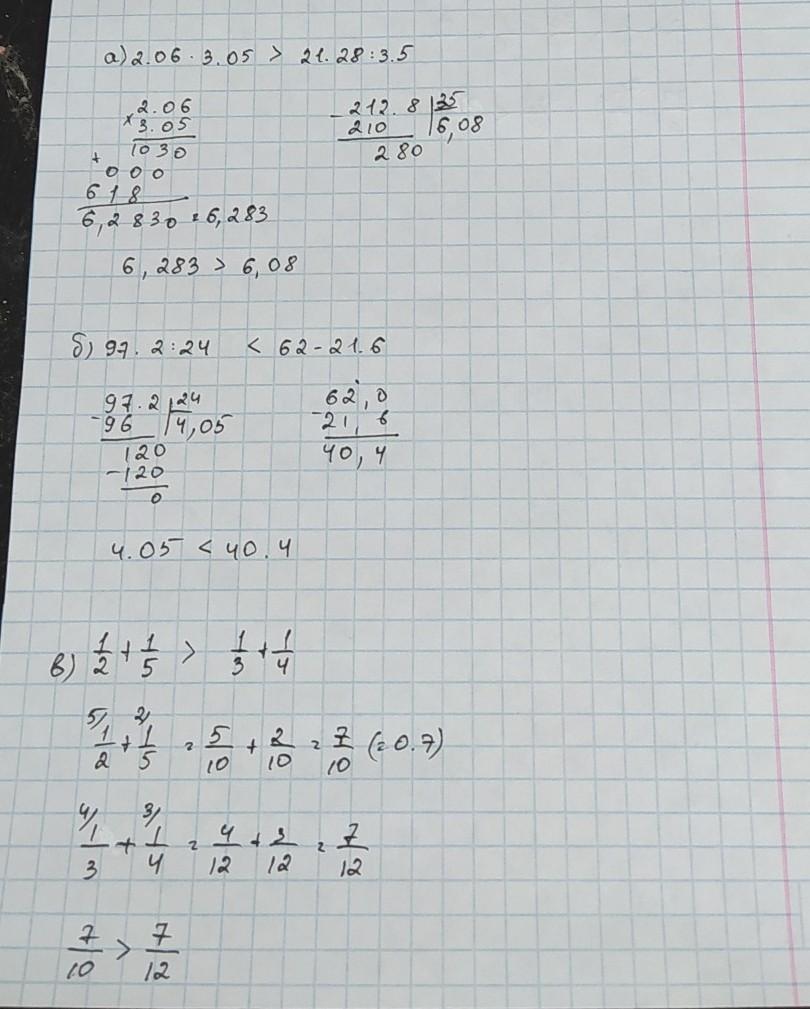 а) 2.06 · 3.05 > 21.28 : 3.5
× 2.06
3.05
1030
+ 000
618
6,2830 = 6,283
- 212.8 | 35
210 | 6,08
280
6,283 > 6,08
б) 97.2 : 24 < 62 - 21.6
97.2 | 24
- 96 | 4,05
120
- 120
0
62,0
- 21,6
40,4
4.05 < 40.4
в) 1/2 + 1/5 > 1/3 + 1/4
5/ 1/2 + 2/ 1/5 = 5/10 + 2/10 = 7/10 (= 0.7)
4/ 1/3 + 3/ 1/4 = 4/12 + 3/12 = 7/12
7/10 > 7/12